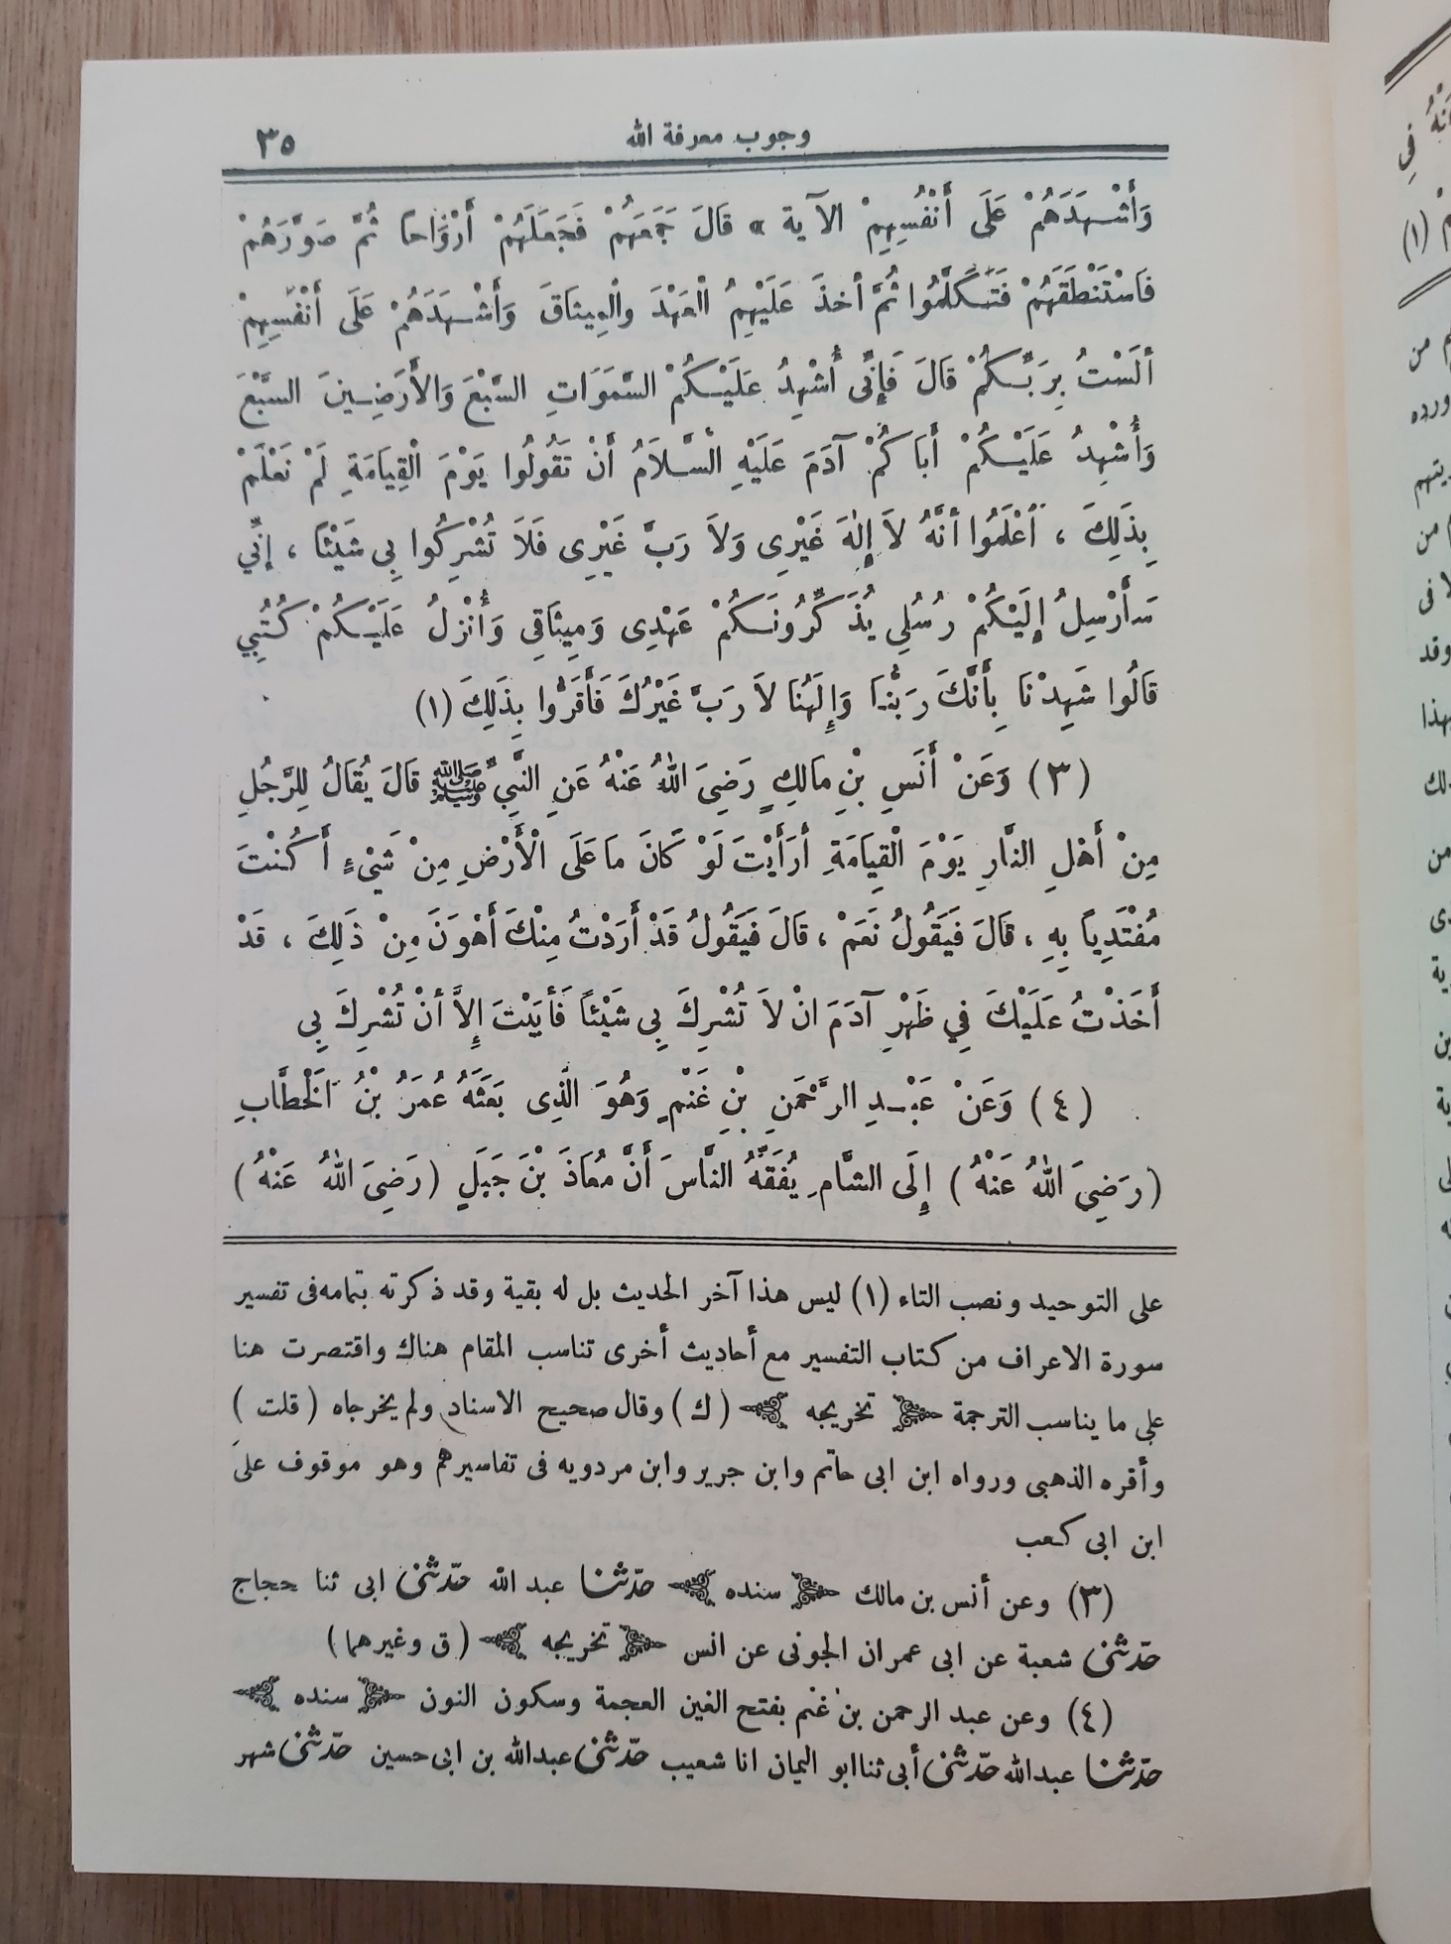 وجوب معرفة الله ٣٥
وَأَشْهَدَهُمْ عَلَى أَنْفُسِهِمْ الآية » قَالَ جَمَعَهُمْ فَجَعَلَهُمْ أَرْوَاحًا ثُمَّ صَوَّرَهُمْ
فَاسْتَنْطَقَهُمْ فَتَكَلَّمُوا ثُمَّ أخذَ عَلَيْهِمُ الْعَهْدَ والْمِيثَاقَ وَأَشْهَدَهُمْ عَلَى أَنْفُسِهِمْ
ألَسْتُ بِرَبِّكُمْ قَالَ فَإِنِّى أُشْهِدُ عَلَيْكُمْ السَّمَوَاتِ السَّبْعَ وَالأَرَضِينَ السَّبْعَ
وَأُشْهِدُ عَلَيْكُمْ أَبَاكُمْ آدَمَ عَلَيْهِ الْسَّلاَمُ أَنْ تَقُولُوا يَوْمَ الْقِيَامَةِ لَمْ نَعْلَمْ
بِذَلِكَ ، اَعْلَمُوا أنَّهُ لاَ إِلٰهَ غَيْرِى وَلاَ رَبَّ غَيْرِى فَلاَ تُشْرِكُوا بِى شَيْئًا ، إنِّي
سَأُرْسِلُ إِلَيْكُمْ رُسُلِي يُذَكِّرُونَكُمْ عَهْدِى وَمِيثَاقِى وَأُنْزِلُ عَلَيْكُمْ كُتُبِي
قَالُوا شَهِدْنَا بِأَنَّكَ رَبُّنَا وَإِلَهُنَا لاَ رَبَّ غَيْرُكَ فَأَقَرُّوا بِذَلِكَ (١)
(٣) وَعَنْ أَنَسِ بْنِ مَالِكٍ رَضِيَ اللهُ عَنْهُ عَنِ النَّبِيِّ ﷺ قَالَ يُقَالُ لِلرَّجُلِ
مِنْ أَهْلِ النَّارِ يَوْمَ الْقِيَامَةِ أَرَأَيْتَ لَوْ كَانَ مَا عَلَى الْأَرْضِ مِنْ شَيْءٍ أَكُنْتَ
مُفْتَدِياً بِهِ ، قَالَ فَيَقُولُ نَعَمْ ، قَالَ فَيَقُولُ قَدْ أَرَدْتُ مِنْكَ أَهْوَنَ مِنْ ذَلِكَ ، قَدْ
أَخَذْتُ عَلَيْكَ فِي ظَهْرِ آدَمَ انْ لاَ تُشْرِكَ بِى شَيْئاً فَأَبَيْتَ إِلاَّ أنْ تُشْرِكَ بِى
(٤) وَعَنْ عَبْدِ الرَّحْمَنِ بْنِ غَنْمٍ وَهُوَ الَّذِى بَعَثَهُ عُمَرُ بْنُ الْخَطَّابِ
(رَضِيَ اللهُ عَنْهُ) إِلَى الشَّامِ يُفَقِّهُ النَّاسَ أَنَّ مُعَاذَ بْنَ جَبَلٍ (رَضِيَ اللهُ عَنْهُ)
على التوحيد ونصب التاء (١) ليس هذا آخر الحديث بل له بقية وقد ذكرته بتمامه فى تفسير
سورة الاعراف من كتاب التفسير مع أحاديث أخرى تناسب المقام هناك واقتصرت هنا
على ما يناسب الترجمة تخريجه (ك) وقال صحيح الاسناد ولم يخرجاه (قلت)
وأقره الذهبى ورواه ابن ابى حاتم وابن جرير وابن مردويه فى تفاسيرهم وهو موقوف على
ابن ابى كعب
(٣) وعن أنس بن مالك سنده حدّثنا عبد الله حدّثنى ابى ثنا حجاج
حدّثنى شعبة عن ابى عمران الجونى عن انس تخريجه (ق وغيرهما)
(٤) وعن عبد الرحمن بن غنم بفتح الغين المعجمة وسكون النون سنده
حدّثنا عبدالله حدّثنى أبى ثنا ابو اليمان انا شعيب حدّثنى عبدالله بن ابى حسين حدّثنى شهر